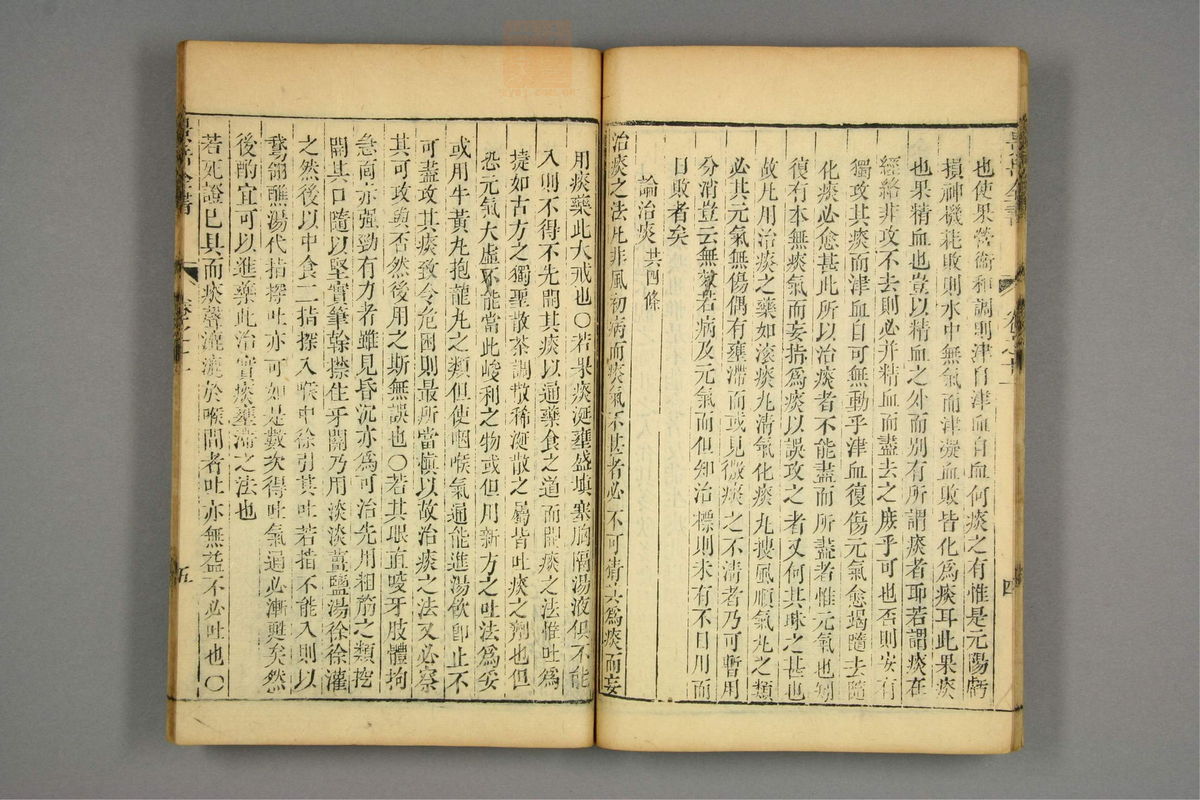 也使果營衛和調則津自津血自血何痰之有惟是元陽虧
損神機耗敗則水中無氣而津凝血敗皆化爲痰耳此果痰
也果精血也豈以精血之外而別有所謂痰者耶若謂痰在
經絡非攻不去則必并精血而盡去之庶乎可也否則安有
獨攻其痰而津血自可無動乎津血復傷元氣愈竭隨去隨
化痰必愈甚此所以治痰者不能盡而所盡者惟元氣也矧
復有本無痰氣而妄指爲痰以誤攻之者又何其昧之甚也
故凡用治痰之藥如滚痰丸清氣化痰丸搜風順氣丸之類
必其元氣無傷偶有壅滯而或見微痰之不清者乃可暫用
分消豈云無效若病及元氣而但知治標則未有不日用而
日敗者矣
論治痰共四條
治痰之法凡非風初病而痰氣不甚者必不可猜其爲痰而妄
四
用痰藥此大戒也〇若果痰涎壅盛填塞胸膈湯液俱不能
入則不得不先開其痰以通藥食之道而開痰之法惟吐爲
捷如古方之獨聖散茶調散稀涎散之屬皆吐痰之劑也但
恐元氣大虛不能當此峻利之物或但用新方之吐法爲妥
或用牛黃丸抱龍丸之類但使咽喉氣通能進湯飲卽止不
可盡攻其痰致令危困則最所當慎以故治痰之法又必察
其可攻與否然後用之斯無誤也〇若其眼直咬牙肢體拘
急面赤强勁有力者雖見昏沉亦爲可治先用粗筯之類挖
開其口隨以堅實筆幹撩住牙關乃用淡淡薑鹽湯徐徐灌
之然後以中食二指探入喉中徐引其吐若指不能入則以
鵝翎蘸湯代指探吐亦可如是數次得吐氣通必漸甦矣然
後酌宜可以進藥此治實痰壅滯之法也
若死證已具而痰聲漉漉於喉間者吐亦無益不必吐也〇
五